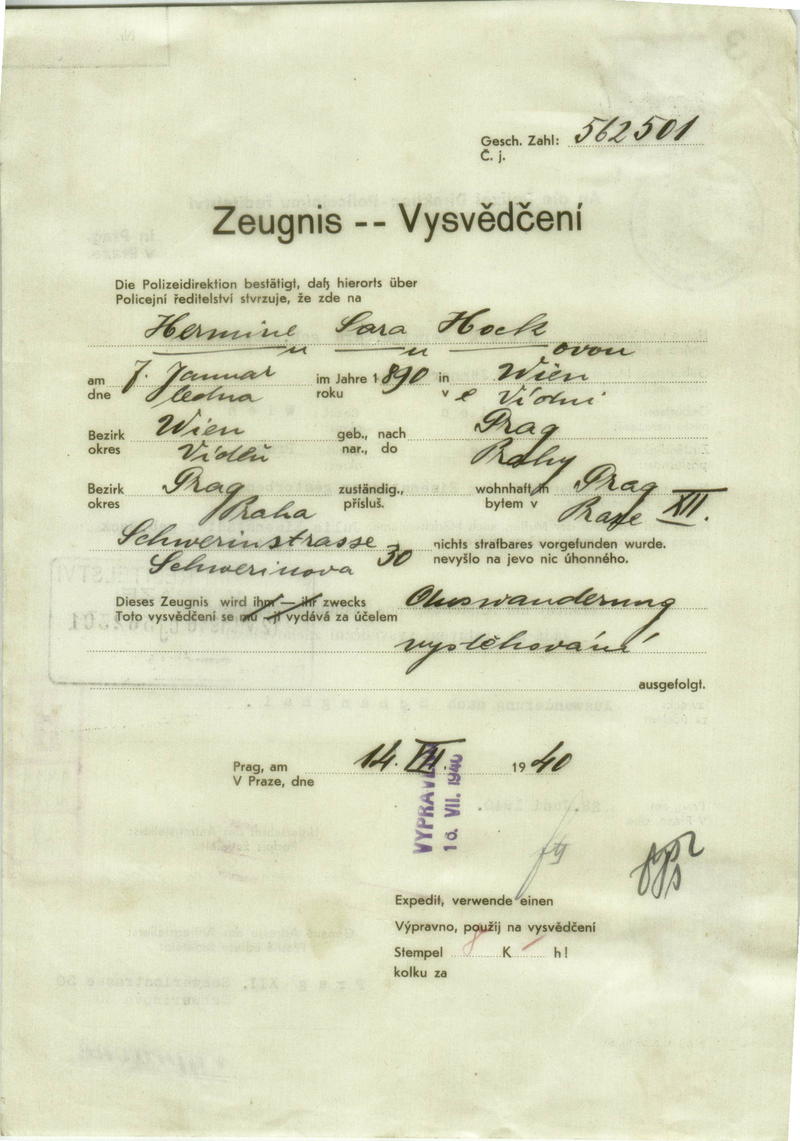 Gesch. Zahl: 562501
Č. j.
Zeugnis -- Vysvědčení
Die Polizeidirektion bestätigt, daß hierorts über
Policejní ředitelství stvrzuje, že zde na
Hermine Sara Hock
u u ovou
am 7. Januar im Jahre 1890 in Wien
dne ledna roku v e Vídni
Bezirk Wien geb., nach Prag
okres Vídeň nar., do Prahy
Bezirk Prag zuständig., wohnhaft in Prag
okres Praha přísluš. bytem v Praze XII.
Schwerinstrasse 30 nichts strafbares vorgefunden wurde.
Schwerinova nevyšlo na jevo nic úhonného.
Dieses Zeugnis wird ihm — ihr zwecks Auswanderung
Toto vysvědčení se mu - jí vydává za účelem
vystěhování
ausgefolgt.
Prag, am 14. VII. 1940
V Praze, dne
VYPRAVENO
16. VII. 1940
Expedit, verwende einen
Výpravno, použij na vysvědčení
Stempel 8 K - h!
kolku za